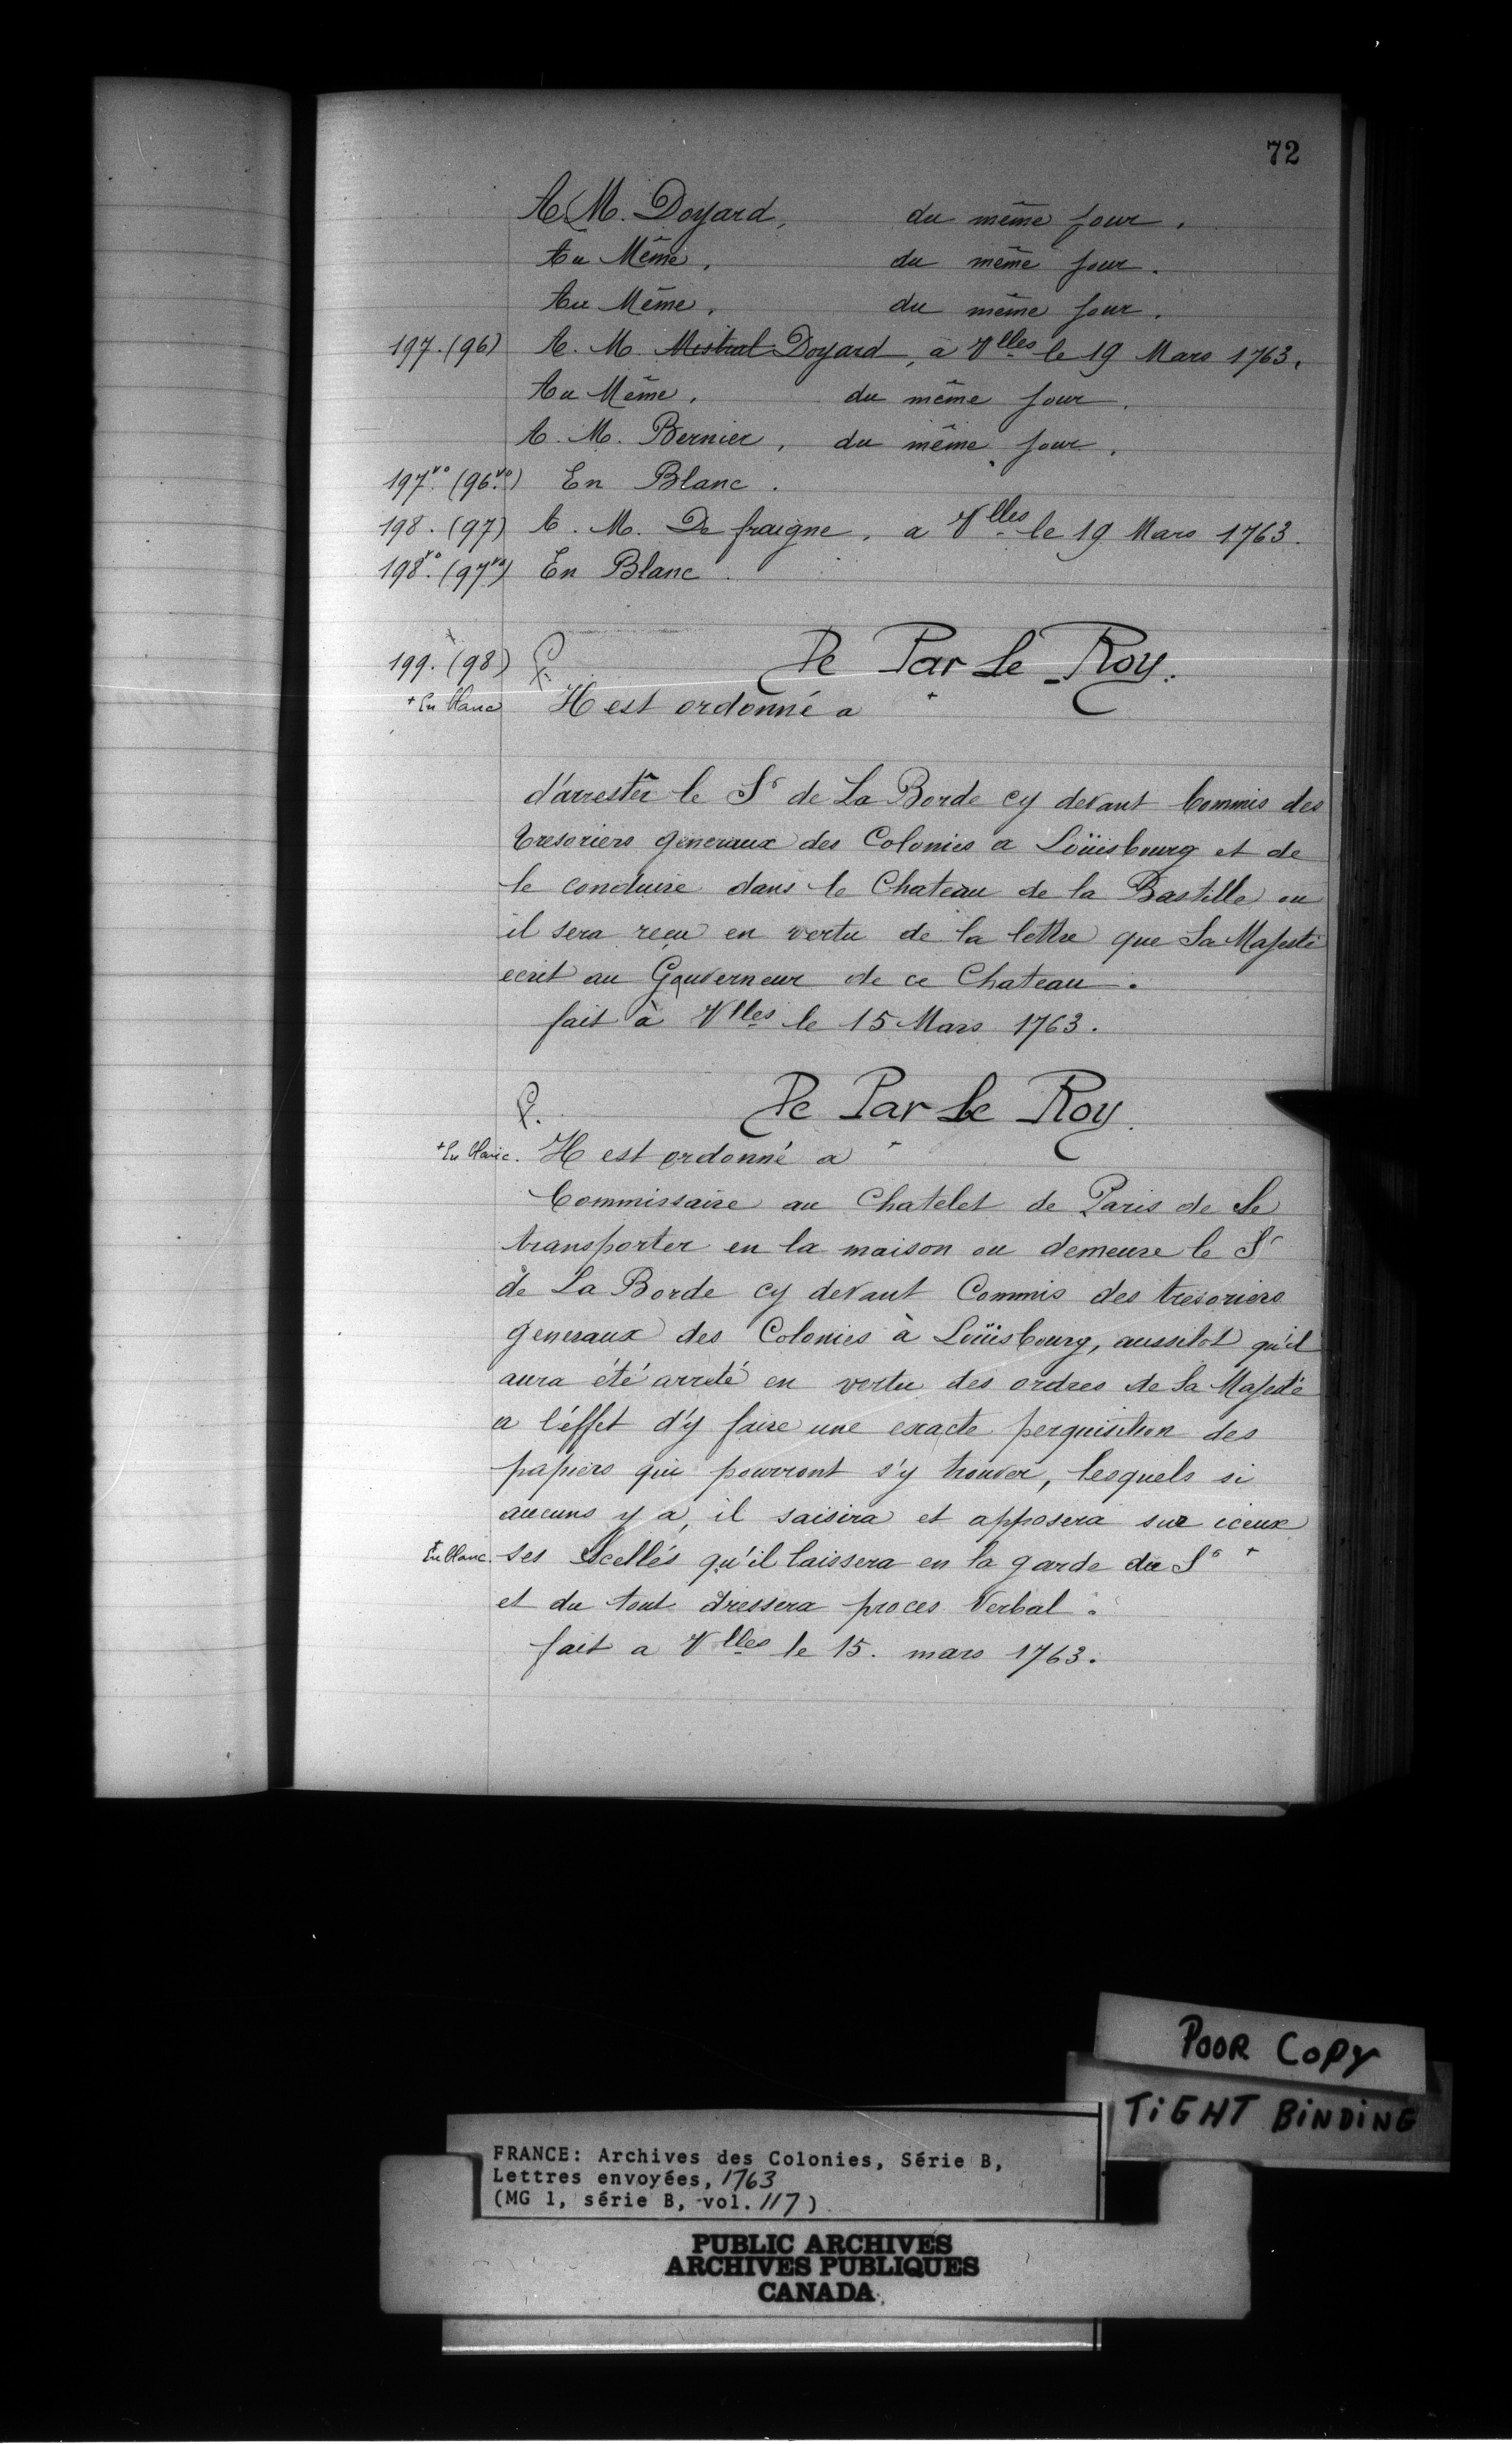 72
A M. Doyard, du même jour.
Au Même, du même jour.
Au Même, du même jour.
197. (96) A. M. Mistral Doyard, a Vlles le 19 Mars 1763.
Au Même, du même jour.
A. M. Bernier, du même jour.
197vo. (96vo) En Blanc.
198. (97) A. M. De fraigne, a Vlles le 19 Mars 1763.
198vo. (97vo) En Blanc.
199. (98) De Par Le Roy.
+ En blanc Il est ordonné a +
d'arrester le Sr de La Borde cy devant Commis des
tresoriers generaux des Colonies a Loüisbourg et de
le conduire dans le Chateau de la Bastille ou
il sera reçu en vertu de la lettre que Sa Majesté
ecrit au Gouverneur de ce Chateau.
fait à Vlles le 15 Mars 1763.
De Par Le Roy.
+ En blanc. Il est ordonné a +
Commissaire au Chatelet de Paris de se
transporter en la maison ou demeure le Sr
de La Borde cy devant Commis des tresoriers
generaux des Colonies à Loüisbourg, aussitot qu'il
aura été arrêté en vertu des ordres de Sa Majesté
a l'éffet d'y faire une exacte perquisition des
papiers qui pourront s'y trouver, lesquels si
aucuns y a, il saisira et apposera sur iceux
+ En blanc. ses Scellés qu'il laissera en la garde du Sr +
et du tout dressera proces Verbal.
fait a Vlles le 15. mars 1763.
POOR COPY
TIGHT BINDING
FRANCE: Archives des Colonies, Série B,
Lettres envoyées, 1763
(MG 1, série B, vol. 117)
PUBLIC ARCHIVES
ARCHIVES PUBLIQUES
CANADA